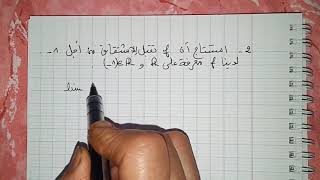 2- استنتاج أن f تقبل الاشتقاق من أجل 1-
لدينا f معرفة على R و (-1)∈R
lim